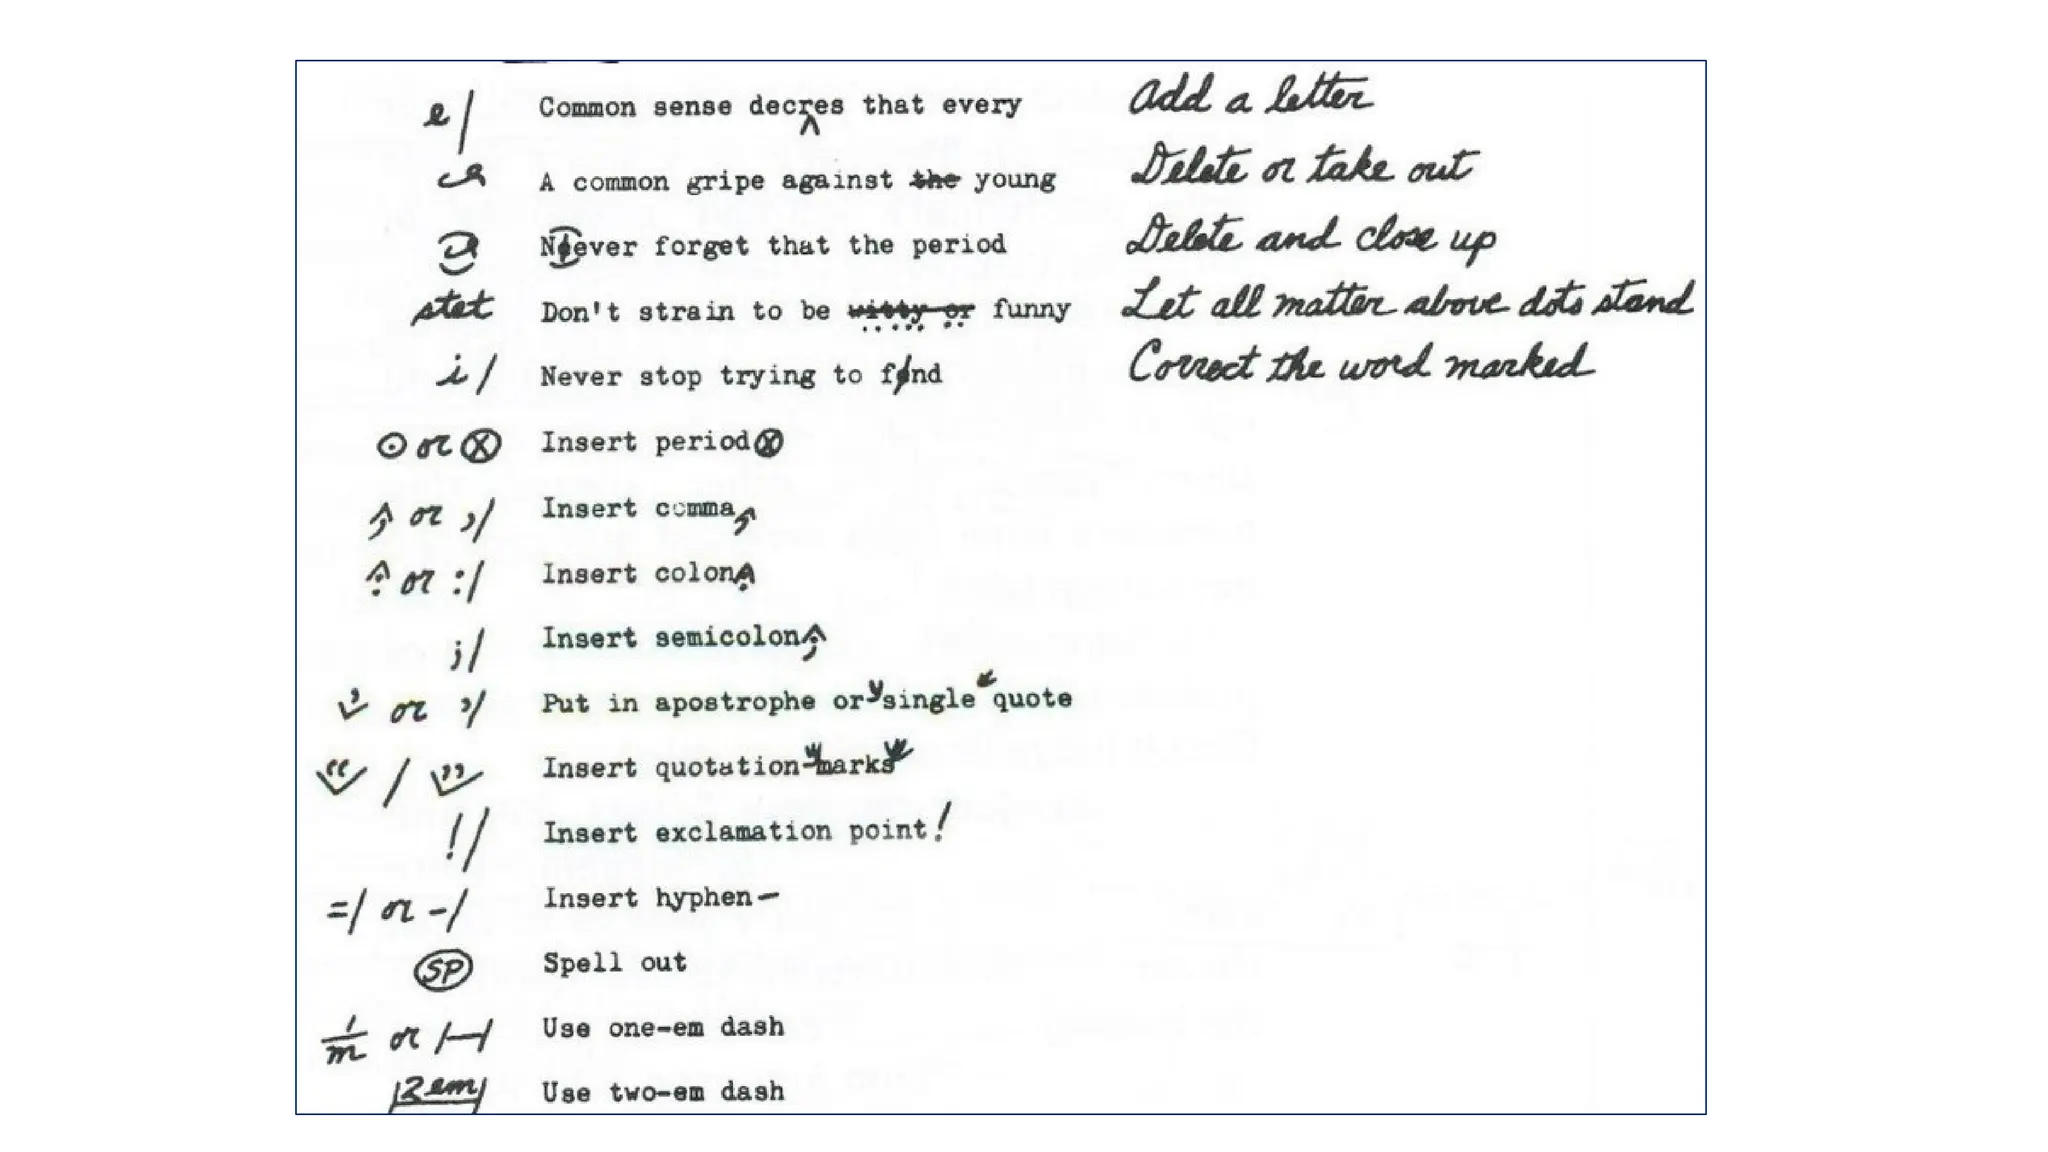 e/ Common sense decres that every Add a letter
A common gripe against the young Delete or take out
Nөever forget that the period Delete and close up
stet Don't strain to be witty or funny Let all matter above dots stand
i/ Never stop trying to fond Correct the word marked
⊙ or ⊗ Insert period⊗
, or ,/ Insert comma,
: or :/ Insert colon:
;/ Insert semicolon;
' or '/ Put in apostrophe or 'single' quote
“ / ” Insert quotation "marks"
!/ Insert exclamation point!
=/ or -/ Insert hyphen-
SP Spell out
1/m or |—| Use one-em dash
2 em Use two-em dash